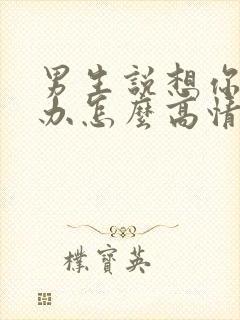 男生說想你
办怎麼高情
樸寶英